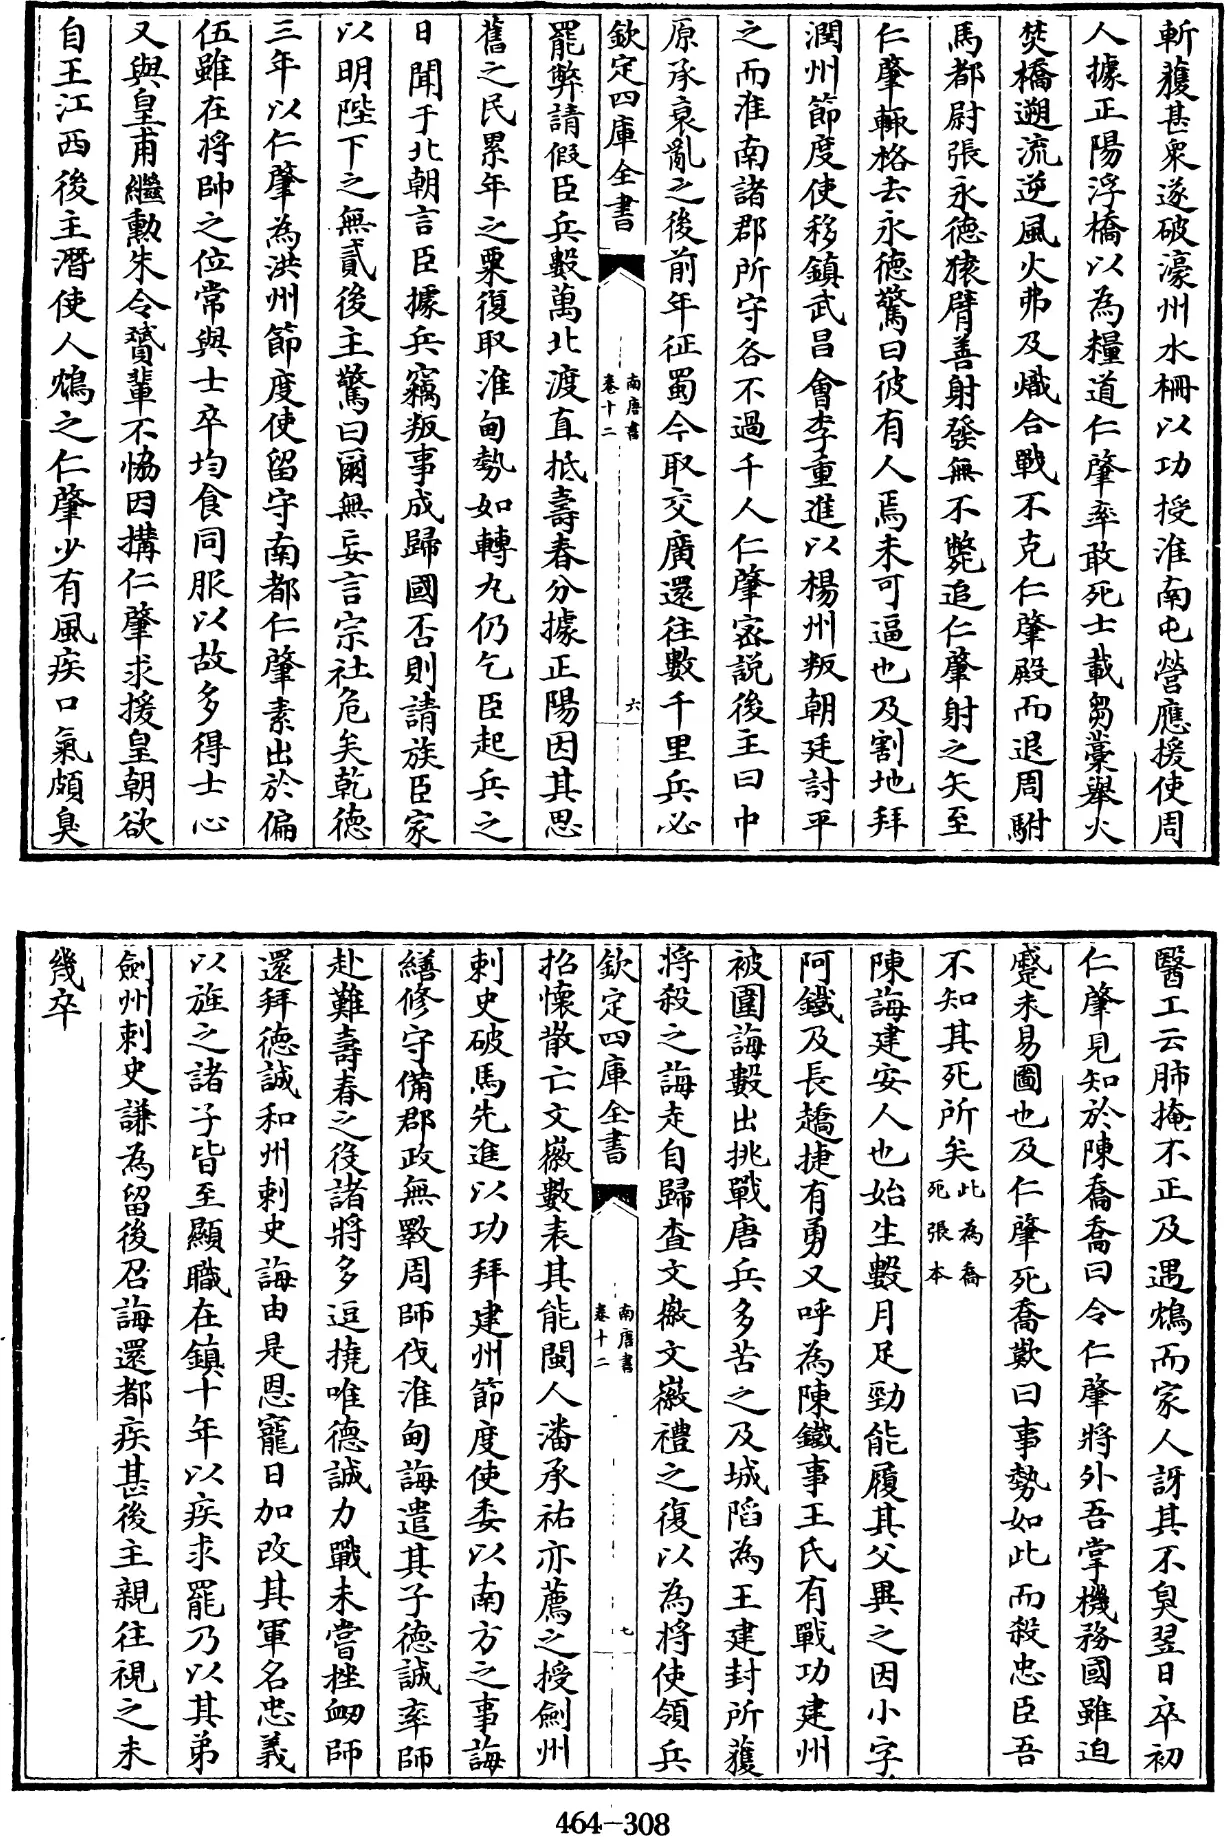 斬獲甚衆遂破濠州水柵以功授淮南屯營應援使周
人據正陽浮橋以為糧道仁肇率敢死士載芻藁舉火
焚橋遡流逆風火弗及熾合戰不克仁肇殿而退周駙
馬都尉張永德猿臂善射發無不斃追仁肇射之矢至
仁肇輒格去永德驚曰彼有人焉未可逼也及割地拜
潤州節度使移鎮武昌會李重進以楊州叛朝廷討平
之而淮南諸郡所守各不過千人仁肇宻説後主曰中
原承衰亂之後前年征蜀今取交廣還往數千里兵必
欽定四庫全書
南唐書
卷十二
六
罷弊請假臣兵數萬北渡直抵壽春分據正陽因其思
舊之民累年之粟復取淮甸勢如轉丸仍乞臣起兵之
日聞于北朝言臣據兵竊叛事成歸國否則請族臣家
以明陛下之無貳後主驚曰爾無妄言宗社危矣乾德
三年以仁肇為洪州節度使留守南都仁肇素出於偏
伍雖在將帥之位常與士卒均食同服以故多得士心
又與皇甫繼勲朱令贇輩不恊因搆仁肇求援皇朝欲
自王江西後主潛使人鴆之仁肇少有風疾口氣頗臭
醫工云肺掩不正及遇鴆而家人訝其不臭翌日卒初
仁肇見知於陳喬喬曰令仁肇將外吾掌機務國雖迫
蹙未易圖也及仁肇死喬歎曰事勢如此而殺忠臣吾
不知其死所矣此為喬死張本
陳誨建安人也始生數月足勁能履其父異之因小字
阿鐡及長趫捷有勇又呼為陳鐡事王氏有戰功建州
被圍誨數出挑戰唐兵多苦之及城陷為王建封所獲
將殺之誨走自歸查文徽文徽禮之復以為將使領兵
欽定四庫全書
南唐書
卷十二
七
招懷散亡文徽數表其能閩人潘承祐亦薦之授劍州
刺史破馬先進以功拜建州節度使委以南方之事誨
繕修守備郡政無斁周師伐淮甸誨遣其子德誠率師
赴難壽春之役諸將多逗撓唯德誠力戰未嘗挫衂師
還拜德誠和州刺史誨由是恩寵日加改其軍名忠義
以旌之諸子皆至顯職在鎮十年以疾求罷乃以其弟
劍州刺史謙為留後召誨還都疾甚後主親往視之未
幾卒
464-308